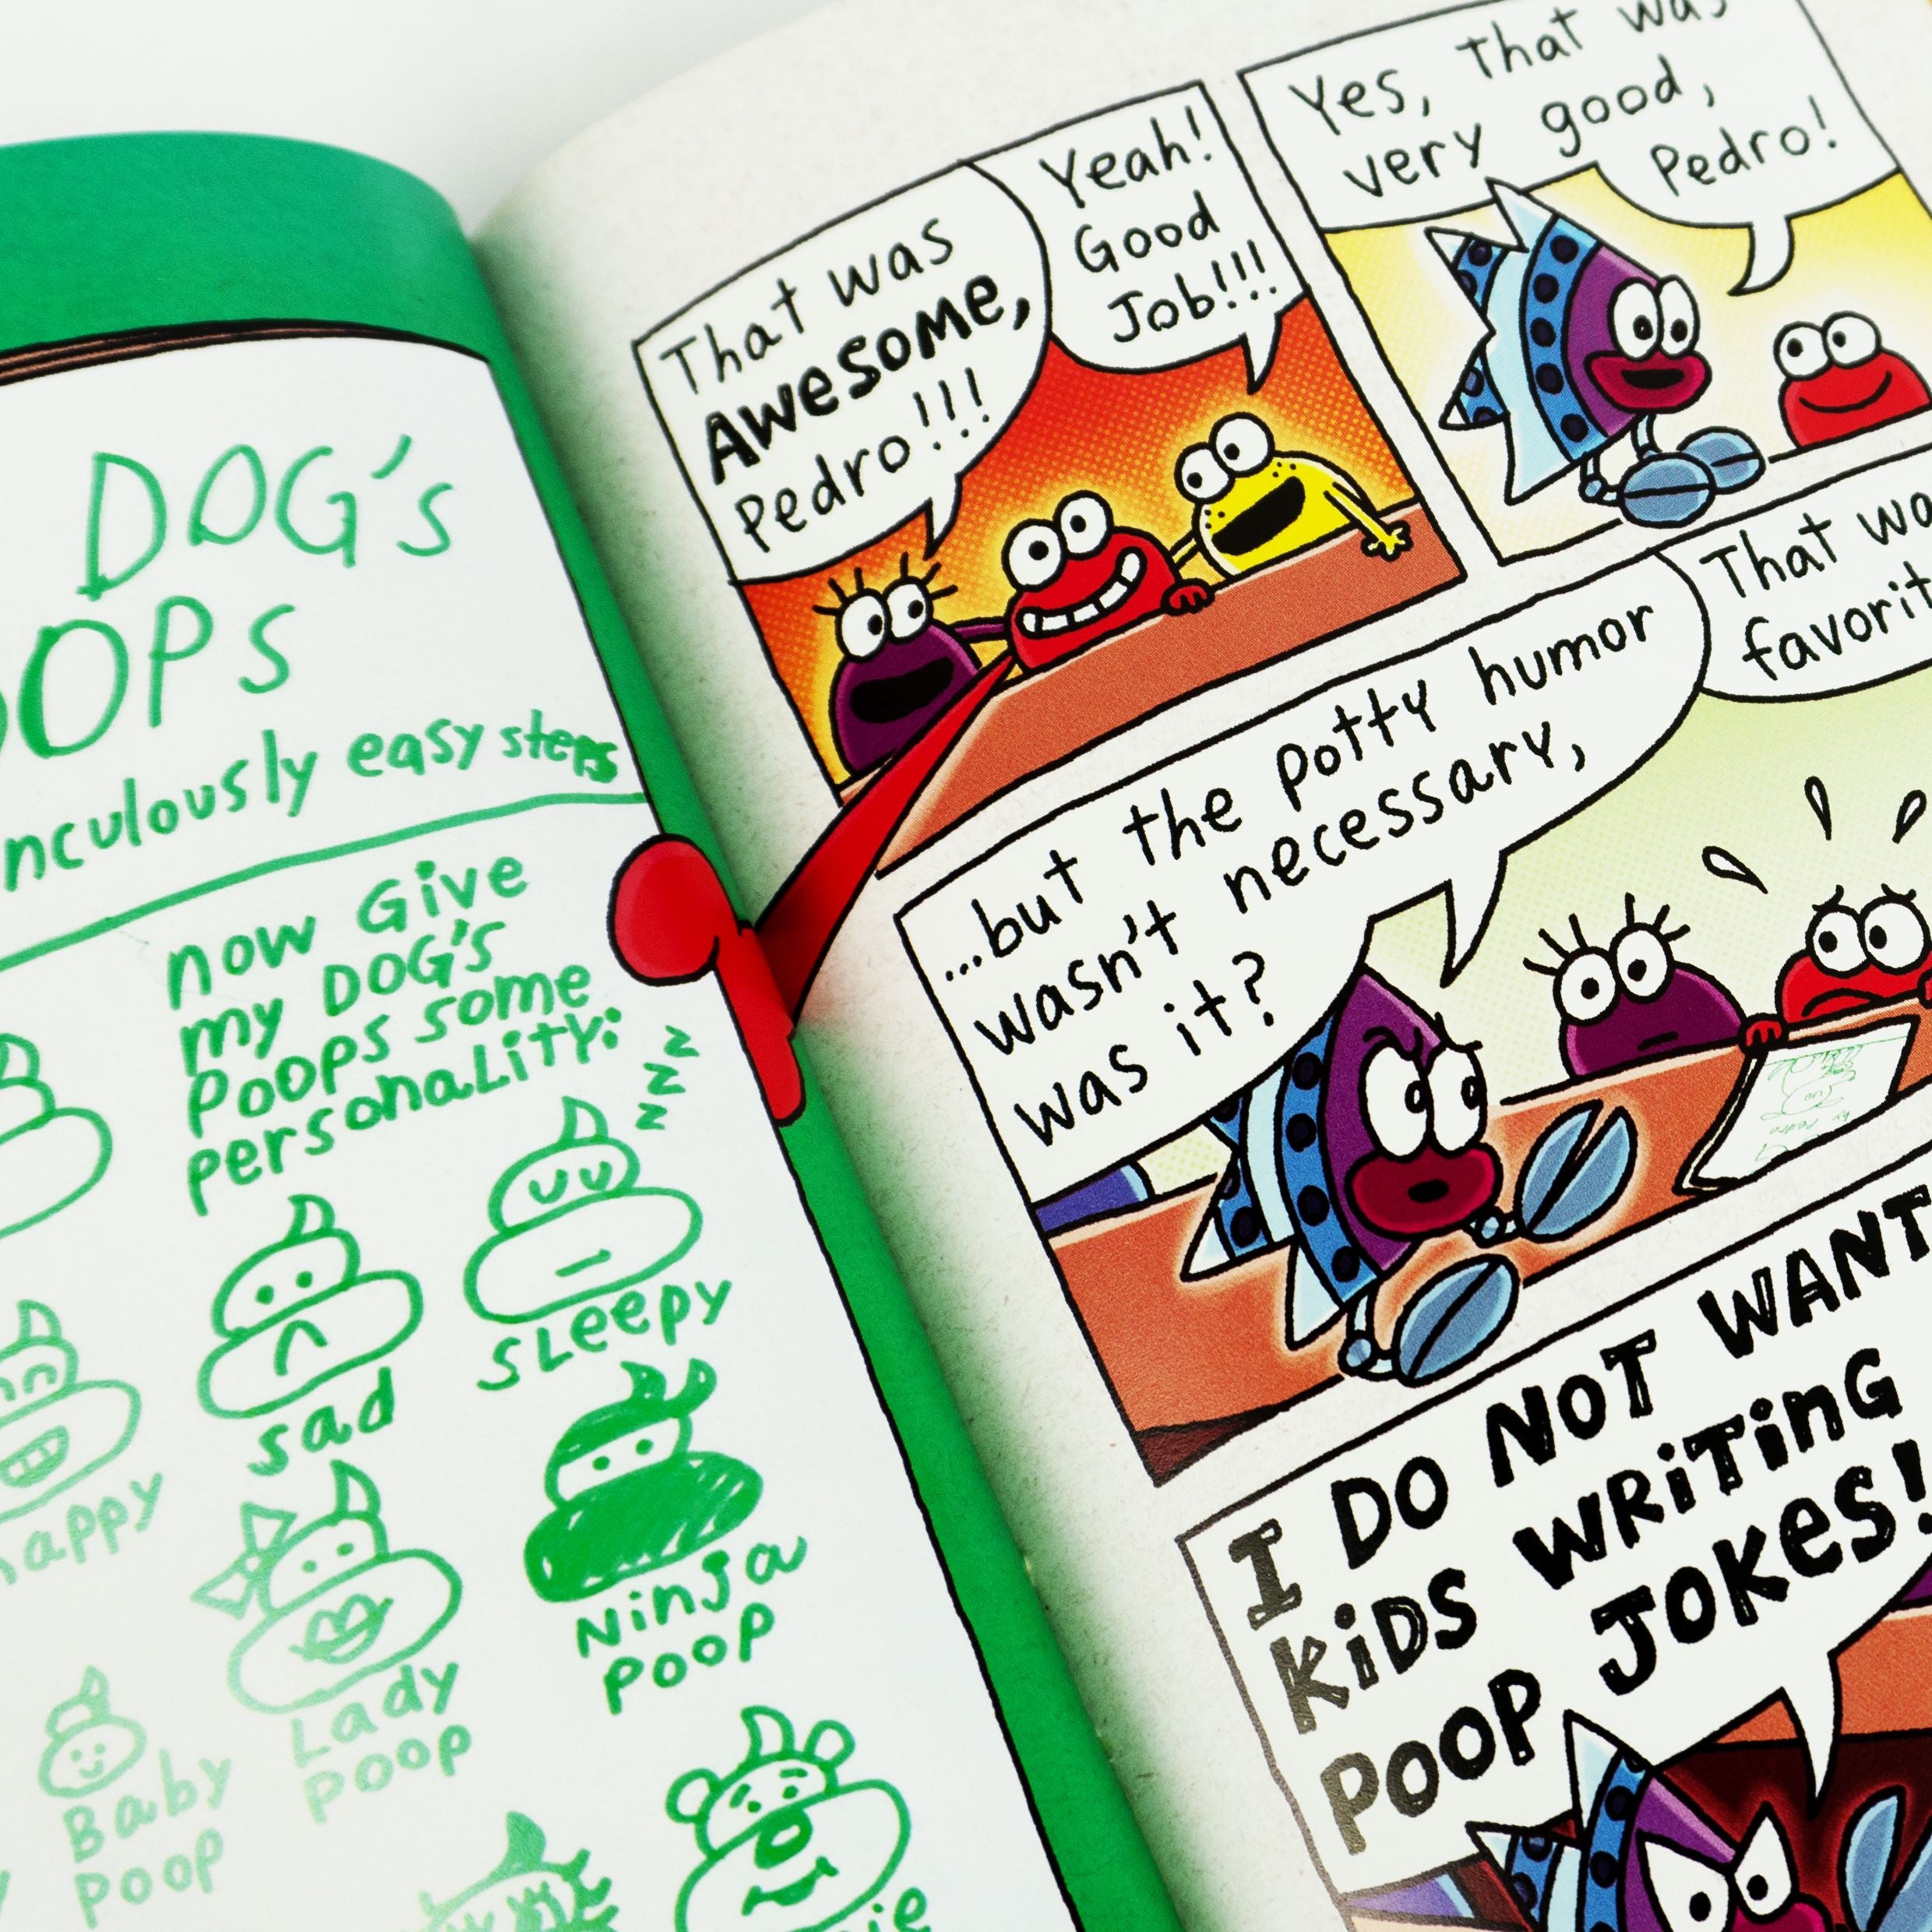 DOG's
nculously easy steps
now Give
my DOG's
Poops some
personality:
zzz
happy
sad
sleepy
Baby
poop
Lady
poop
Ninja
poop
That was
AWESOME,
Pedro!!!
Yeah!
Good
Job!!!
Yes, that was
very good,
Pedro!
...but the potty humor
wasn't necessary,
was it?
That
I DO NOT WANT
KiDS WRiTinG
POOP JOKES!